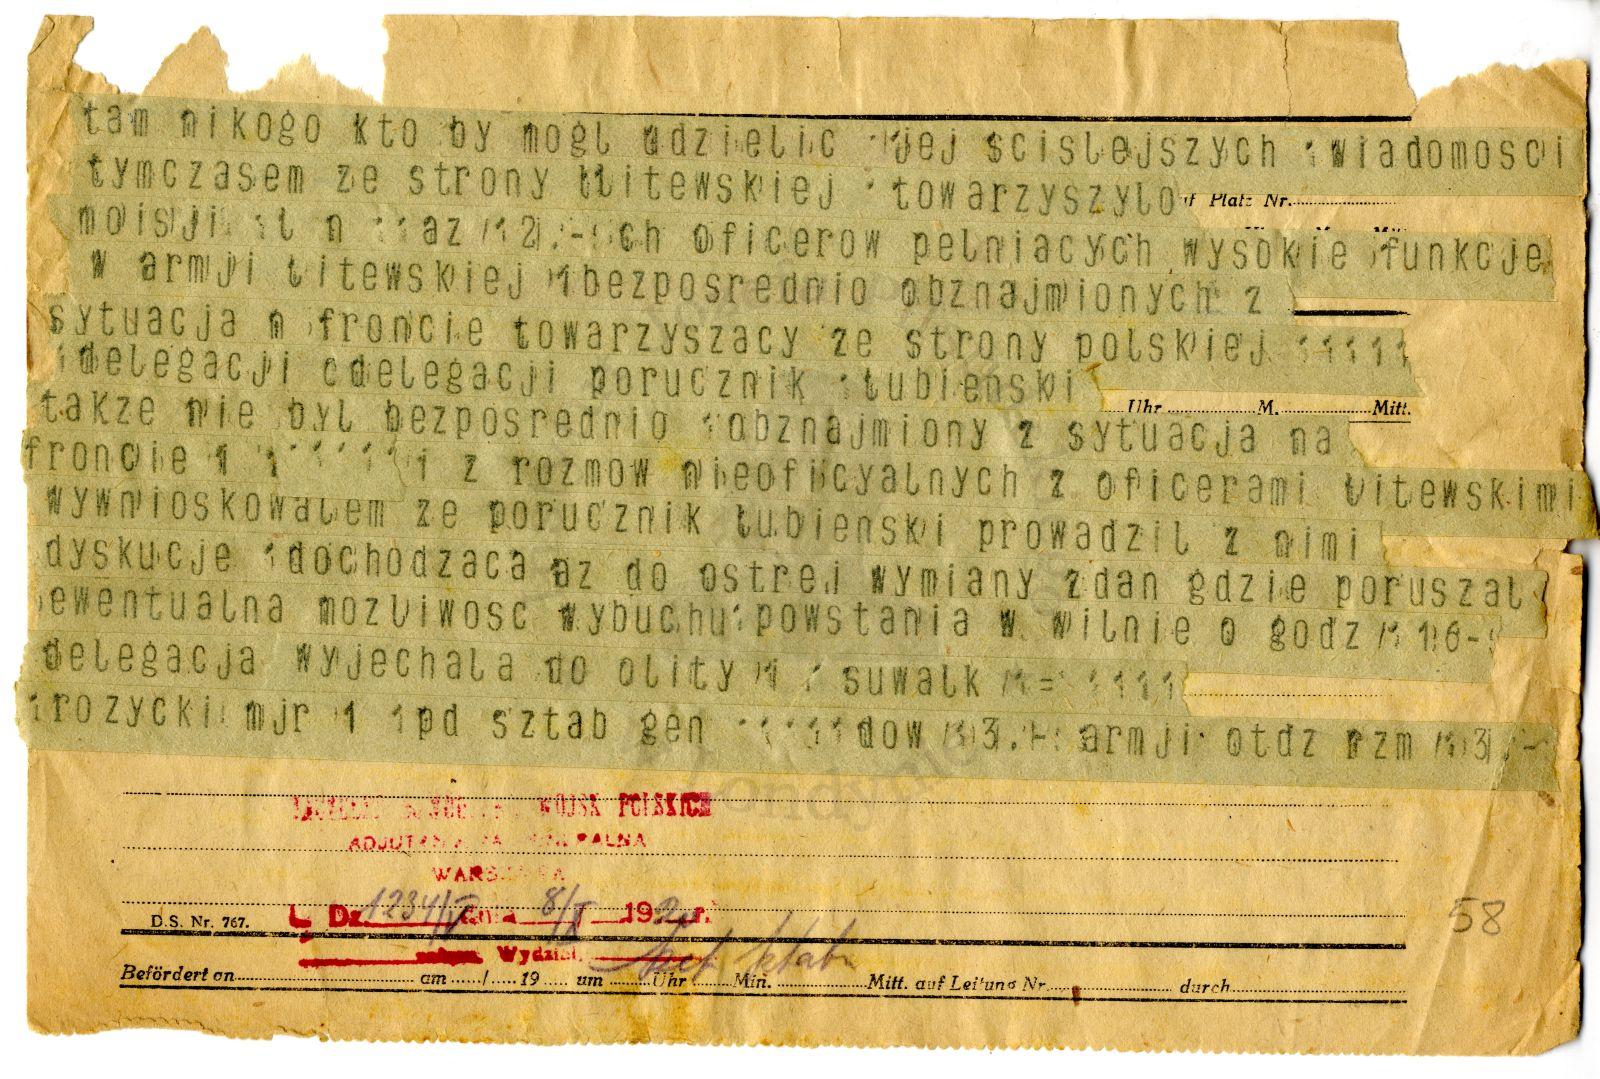 tam nikogo kto by mogl udzielic jej scislejszych wiadomosci
tymczasem ze strony litewskiej towarzyszylo
uf Platz Nr.
az 12 ch oficerow pelniacych wysokie funkcje
w armji litewskiej bezposrednio obznajmionych z
sytuacja n froncie towarzyszacy ze strony polskiej 11111
delegacji cdelegacji porucznik lubienski
Uhr M. Mitt.
takze nie byl bezposrednio obznajmiony z sytuacja na
froncie z rozmow nieoficyalnych z oficerami litewskimi
wywnioskowalem ze porucznik lubienski prowadzil z nimi
dyskucje dochodzaca az do ostrej wymiany zdan gdzie poruszal
ewentualna mozliwosc wybuchu powstania w wilnie o godz 16-
delegacja wyjechala do olity suwalk = 1111
rozycki mjr 1 pd sztab gen dow 3.- armji otdz rzm 3
WOJSK POLSKICH
ADJUTANTURA GENERALNA
WARSZAWA
L. Dz. 1234/V dnia 8/X 1920 r.
D.S. Nr. 767.
58
Wydział
Befördert an am / 19 um Uhr Min. Mitt. auf Leitung Nr. durch